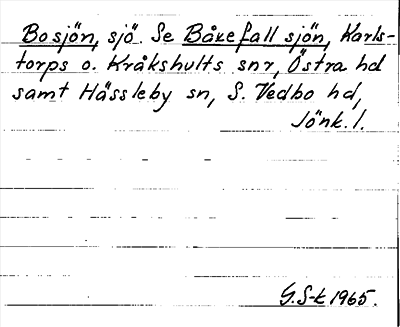 Bosjön, sjö Se Båkefall sjön, Karls-
torps o. Kråkshults snr, Östra hd
samt Hässleby sn, S. Vedbo hd,
Jönk. l.
G. S-t 1965.